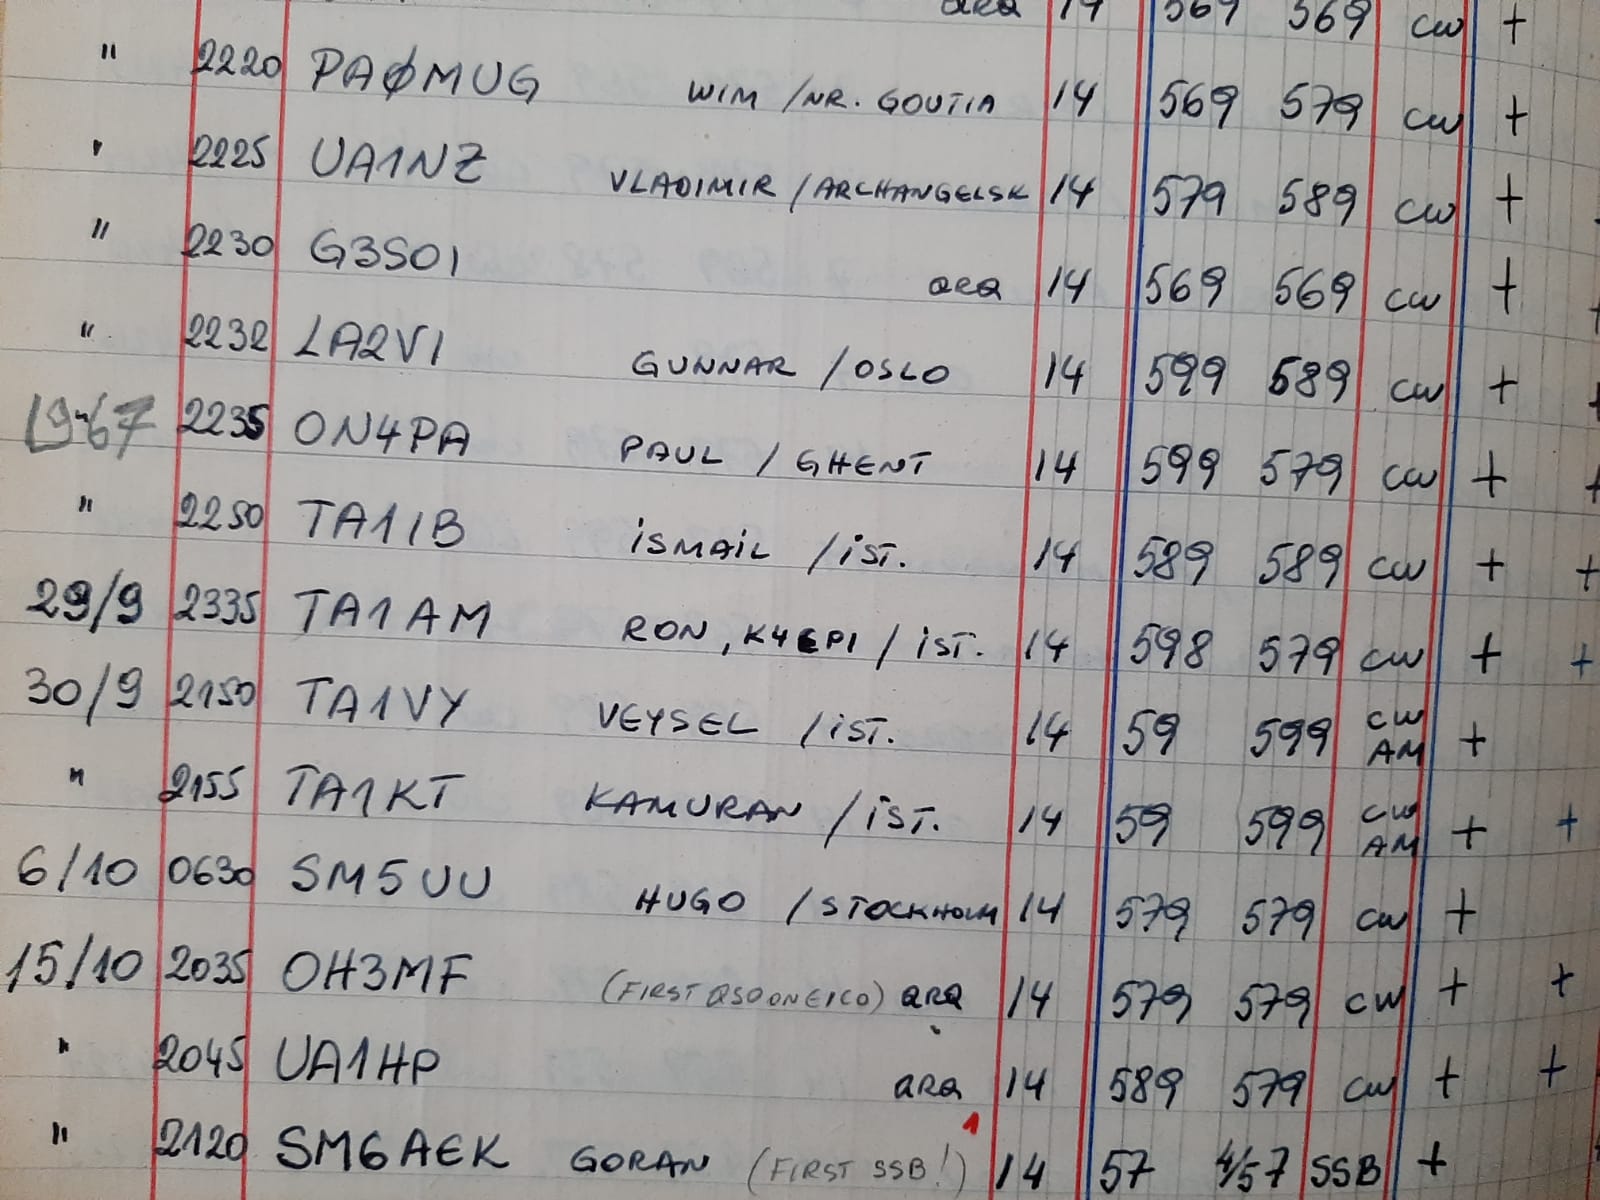 ARQ 14 569 569 CW +
" 2220 PAØMUG WIM / NR. GOUTIA 14 569 579 CW +
" 2225 UA1NZ VLADIMIR / ARCHANGELSK 14 579 589 CW +
" 2230 G3SOI ARQ 14 569 569 CW +
" 2232 LA2VI GUNNAR / OSLO 14 599 589 CW +
1967 2235 ON4PA PAUL / GHENT 14 599 579 CW +
" 2250 TA1IB İSMAİL / İST. 14 589 589 CW + +
29/9 2335 TA1AM RON, K4EPI / İST. 14 598 579 CW + +
30/9 2150 TA1VY VEYSEL / İST. 14 59 599 CW AM +
" 2155 TA1KT KAMURAN / İST. 14 59 599 CW AM + +
6/10 0630 SM5UU HUGO / STOCKHOLM 14 579 579 CW +
15/10 2035 OH3MF (FIRST QSO ON EICO) ARQ 14 579 579 CW + +
" 2045 UA1HP ARQ 14 589 579 CW + +
" 2120 SM6AEK GORAN (FIRST SSB!) 14 57 4/57 SSB +